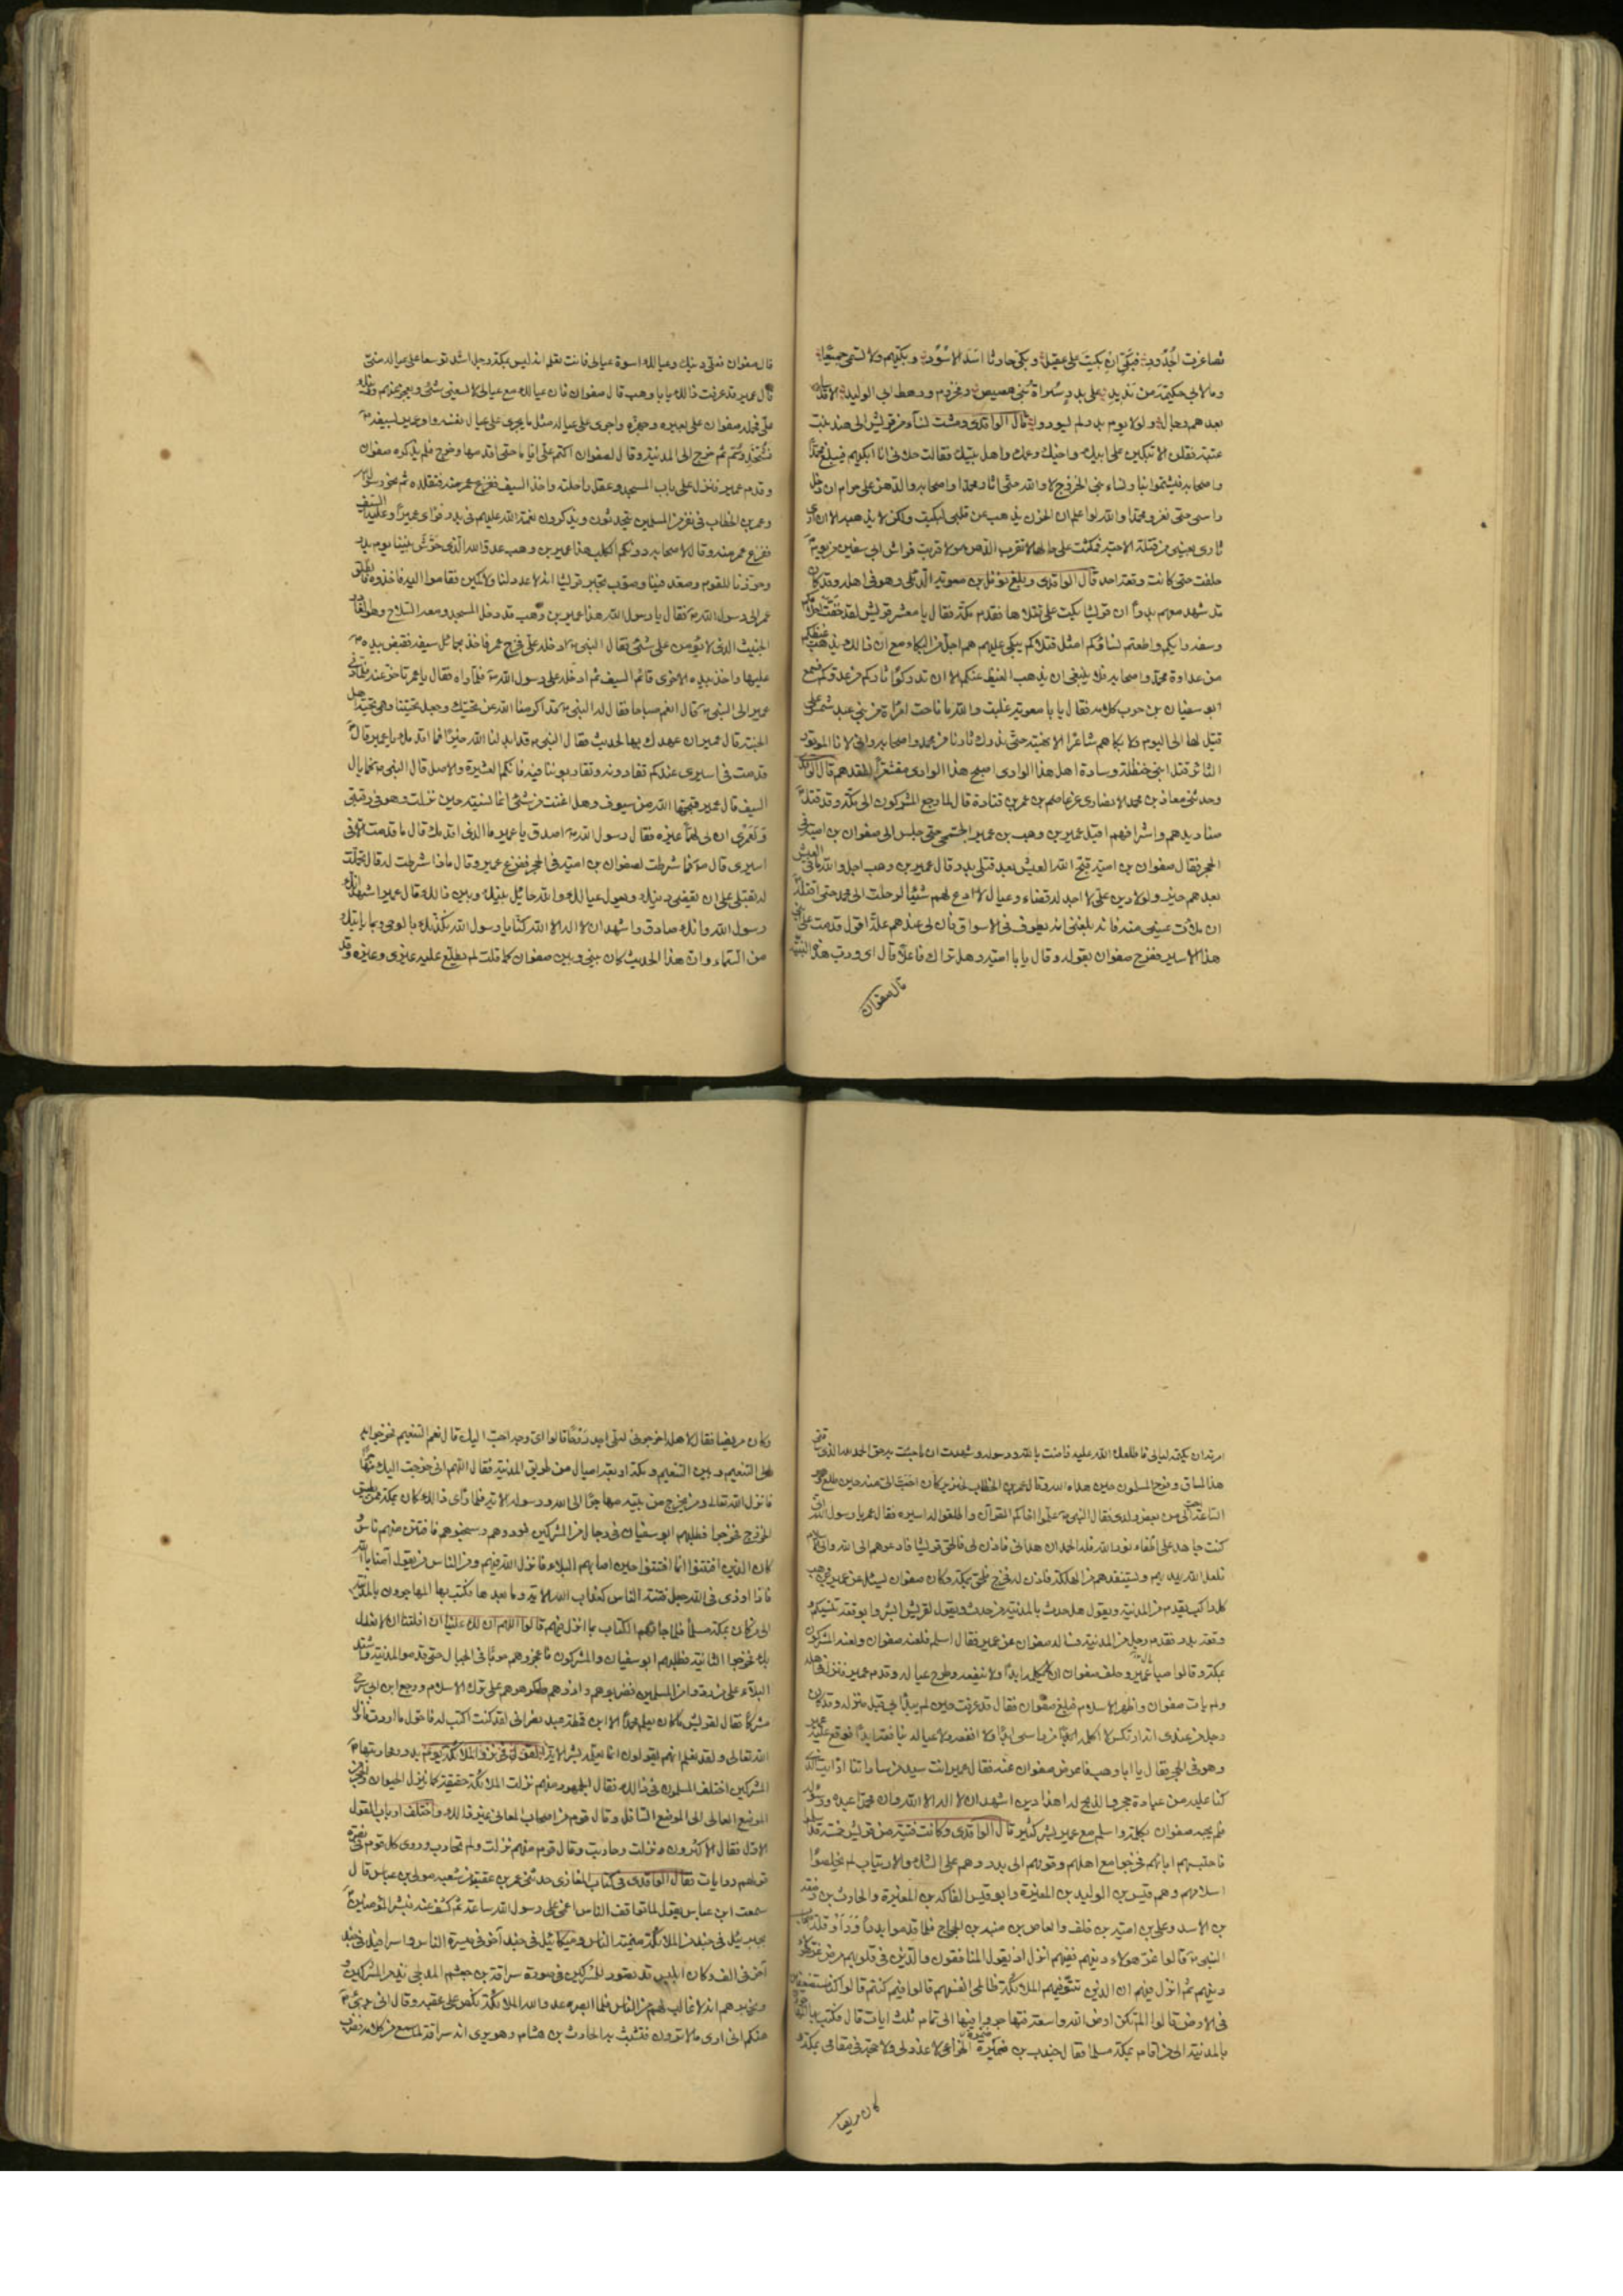 تصاغرت الجدود فبكّي ان بكيت على عقيل وبكّي حارثا اسد الاسود وبكّيهم ولا تسمي جميعا
وما لابي حكيمة من نديد على بدر سراة بني هصيص ومخزوم ورهط ابي الوليد الا قد ساد
بعدهم رجال ولولا يوم بدر لم يسودوا قال الواقدي ومشت نساء من قريش الى هند بنت
عتبة فقلن الا تبكين على ابيك واخيك وعمك واهل بيتك فقالت حلاني انا ابكيهم فيبلغ محمدا
واصحابه فيشمتوا بنا ونساء بني الخزرج لا والله حتى اثار محمدا واصحابه والدهن علي حرام ان دخل
راسي حتى نغزو محمدا والله لو اعلم ان الحزن يذهب من قلبي لبكيت ولكن لا يذهبه الا ان ارى
ثاري بعيني من قتلة الاحبة فمكثت على حالها لا تقرب الدهن ولا قربت فراش ابي سفين من يوم
حلفت حتى كانت وقعة احد قال الواقدي وبلغ نوفل بن معوية الديلي وهو في اهله وقد كان
قد شهد معهم بدرا ان قريشا بكت على قتلاها فقدم مكة فقال يا معشر قريش لقد خفت احلامكم
وسفه رايكم واطعتم نساءكم امثل قتلاكم يبكى عليهم هم اجل من البكاء مع ان ذالك يذهب غيظكم
من عداوة محمد واصحابه فلا ينبغي ان يذهب الغيظ عنكم الا ان تدركوا ثاركم من عدوكم فسمع
ابو سفيان بن حرب كلامه فقال يا با معوية غلبت والله ما ناحت امراة من بني عبد شمس على
قتيل لها الى اليوم ولا بكاهم شاعر الا نهيته حتى ندرك ثارنا من محمد واصحابه واني لانا الموتور
الثائر قتل ابني حنظلة وسادة اهل هذا الوادي اصبح هذا الوادي مقشعرا لفقدهم قال الواقدي
وحدثني معاذ بن محمد الانصاري عن عاصم بن عمر بن قتادة قال لما رجع المشركون الى مكة وقد قتل
صناديدهم واشرافهم اقبل عمير بن وهب بن عمير الجمحي حتى جلس الى صفوان بن امية في
الحجر فقال صفوان بن امية قبح الله العيش بعد قتلى بدر قال عمير بن وهب اجل والله ما في العيش
بعدهم خير ولولا دين علي لا اجد له قضاء وعيال لا ادع لهم شيئا لرحلت الى محمد حتى اقتله
ان ملات عيني منه فانه بلغني انه يطوف في الاسواق فان لي عندهم علة اقول قدمت على ابني
هذا الاسير ففرح صفوان بقوله وقال يا با امية وهل نراك فاعلا قال اي ورب هذه البنية
قال صفوان
قال صفوان فعلي دينك وعيالك اسوة عيالي فانت تعلم انه ليس بمكة رجل اشد توسعا على عياله مني
قال عمير قد عرفت ذالك يا با وهب قال صفوان فان عيالك مع عيالي لا يسعني شئ ويعجز عنهم ودينك
علي فحمله صفوان على بعيره وجهزه واجرى على عياله مثل ما يجري على عيال نفسه وامر عمير بسيفه
فشحذ وسم ثم خرج الى المدينة وقال لصفوان اكتم علي اياما حتى اقدمها وخرج فلم يذكره صفوان
وقدم عمير فنزل على باب المسجد وعقل راحلته واخذ السيف فتقلده ثم عمد نحو رسول الله
وعمر بن الخطاب في نفر من المسلمين يتحدثون ويذكرون نعمة الله عليهم في بدر فراى عميرا وعليه السيف
ففزع عمر منه وقال لاصحابه دونكم الكلب هذا عمير بن وهب عدو الله الذي حرش بيننا يوم بدر
وحزرنا للقوم وصعد فينا وصوب يخبر قريشا انه لا عدد لنا ولا كمين فقاموا اليه فاخذوه فانطلق
عمر الى رسول الله ص فقال يا رسول الله هذا عمير بن وهب قد دخل المسجد ومعه السلاح وهو الغادر
الخبيث الذي لا يؤمن على شئ فقال النبي ص ادخله علي فخرج عمر فاخذ بحمائل سيفه فقبض بيده
عليها واخذ بيده الاخرى قائم السيف ثم ادخله على رسول الله ص فلما راه فقال يا عمر تاخر عنه فلما دنى
عمير الى النبي ص قال انعم صباحا فقال له النبي ص قد اكرمنا الله عن تحيتك وجعل تحيتنا وهي تحية اهل
الجنة قال عمير ان عهدك بها لحديث فقال النبي ص قد ابدلنا الله خيرا فما اقدمك يا عمير قال
قدمت في اسيري عندكم تفادونه وتقاربوننا فيه فانكم العشيرة والاصل قال النبي ص فما بال
السيف قال عمير قبحها الله من سيوف وهل اغنت من شئ انما نسيته حين نزلت وهو في رقبتي
ولعمري ان لي لهما غيره فقال رسول الله ص اصدق يا عمير ما الذي اقدمك قال ما قدمت الا في
اسيري قال ص فما شرطت لصفوان بن امية في الحجر ففزع عمير وقال ماذا شرطت له قال تحملت
له بقتلي على ان يقضي دينك ويعول عيالك والله حائل بينك وبين ذالك قال عمير اشهد انك
رسول الله وانك صادق واشهد ان لا اله الا الله كنا يا رسول الله نكذبك بالوحي وبما ياتيك
من السماء وان هذا الحديث كان بيني وبين صفوان كما قلت لم يطلع عليه غيري وغيره وقد
امرته ان يكتمه ليالي فاطلعك الله عليه فامنت بالله ورسوله وشهدت ان ما جئت به حق الحمد لله الذي ساقني
هذا المساق وفرح المسلمون حين هداه الله وقال عمر بن الخطاب لخنزير كان احب الي منه حين طلع وهو
الساعة احب الي من بعض ولدي فقال النبي ص علموا اخاكم القرآن واطلقوا له اسيره فقال عمير يا رسول الله اني
كنت جاهدا على اطفاء نور الله فله الحمد ان هداني فاذن لي فالحق قريشا فادعوهم الى الله والى الاسلام
فلعل الله يهديهم ويستنقذهم من الهلكة فاذن له فخرج فلحق بمكة وكان صفوان يسئل عن عمير بن وهب
كل راكب يقدم من المدينة ويقول هل حدث بالمدينة من حدث ويقول لقريش ابشروا بوقعة تنسيكم
وقعة بدر فقدم رجل من المدينة فساله صفوان عن عمير فقال اسلم فلعنه صفوان ولعنه المشركون
بمكة وقالوا صبا عمير وحلف صفوان ان لا يكلمه ابدا ولا ينفعه وطرح عياله وقدم عمير فنزل في اهله
ولم يات صفوان واظهر الاسلام فبلغ صفوان فقال قد عرفت حين لم يبدا بي قبل منزله وقد كان
رجل من عندي انه ارتكس لا اكلمه من راسي ابدا ولا انفعه ولا عياله بنافعة ابدا فوقع عليه عمير
وهو في الحجر فقال يا ابا وهب فاعرض صفوان عنه فقال عمير انت سيد من ساداتنا ارايت الذي
كنا عليه من عبادة حجر والذبح له اهذا دين اشهد ان لا اله الا الله وان محمدا عبده ورسوله
فلم يجبه صفوان بكلمة واسلم مع عمير بشر كثير قال الواقدي وكانت فتية من قريش خمسة قد اسلموا
فاحتبسهم اباؤهم فخرجوا مع اهلهم وقومهم الى بدر وهم على الشك والارتياب لم يخلصوا
اسلامهم وهم قيس بن الوليد بن المغيرة وابو قيس الفاكه بن المغيرة والحارث بن زمعة
بن الاسود وعلي بن امية بن خلف والعاص بن منبه بن الحجاج فلما قدموا بدرا وراوا قلة اصحاب
النبي ص قالوا غر هؤلاء دينهم ففيهم انزل اذ يقول المنافقون والذين في قلوبهم مرض غر هؤلاء
دينهم ثم انزل فيهم ان الذين تتوفيهم الملائكة ظالمي انفسهم قالوا فيم كنتم قالوا كنا مستضعفين
في الارض قالوا الم تكن ارض الله واسعة فتهاجروا فيها الى تمام ثلث ايات قال فكتب بها المهاجرون
بالمدينة الى من اقام بمكة مسلما فقال جندب بن ضمرة الخزاعي لا عذر لي ولا حجة في مقامي بمكة
كان مريضا
وكان مريضا فقال لاهله اخرجوني لعلي اجد روحا قالوا اي وجه احب اليك قال نعم التنعيم فخرجوا به
الى التنعيم وبين التنعيم ومكة اربعة اميال من طريق المدينة فقال اللهم اني خرجت اليك مهاجرا
فانزل الله تعالى ومن يخرج من بيته مهاجرا الى الله ورسوله الاية فلما راى ذالك من كان بمكة ممن يطيق
الخروج خرجوا فطلبهم ابو سفيان في رجال من المشركين فردوهم وسجنوهم فافتتن منهم ناس
كان الذين افتتنوا انما افتتنوا حين اصابهم البلاء فانزل الله فيهم ومن الناس من يقول آمنا بالله
فاذا اوذي في الله جعل فتنة الناس كعذاب الله الاية وما بعدها فكتب بها المهاجرون بالمدينة
الى من كان بمكة مسلما فلما جاءهم الكتاب بما انزل فيهم قالوا اللهم ان لك علينا ان افلتنا ان لا نعدل
بك فخرجوا الثانية فطلبهم ابو سفيان والمشركون فاعجزوهم هربا في الجبال حتى قدموا المدينة واشتد
البلاء على من ردوا من المسلمين فضربوهم واذوهم واكرهوهم على ترك الاسلام ورجع ابن ابي سرح
مشركا فقال لقريش ما كان يعلم محمدا الا ابن قمطة عبد نصراني لقد كنت اكتب له فاحول ما اردت فانزل
الله تعالى ولقد نعلم انهم يقولون انما يعلمه بشر الاية القول في نزول الملائكة يوم بدر ومحاربتها
المشركين اختلف المسلمون في ذالك فقال الجمهور منهم نزلت الملائكة حقيقة كما ينزل الحيوان والحجر من
الموضع العالي الى الموضع السافل وقال قوم من اصحاب المعاني بغير ذالك واختلف ارباب القول
الاول فقال الاكثرون نزلت وحاربت وقال قوم منهم نزلت ولم تحارب وروى كل قوم في نصرة
قولهم روايات فقال الواقدي في كتاب المغازي حدثني عمر بن عقبة عن شعبة مولى بن عباس قال
سمعت ابن عباس يقول لما تواقف الناس اغمي على رسول الله ساعة ثم كشف عنه فبشر المؤمنين
بجبرئيل في جند من الملائكة ميمنة الناس وميكائيل في جند آخر في ميسرة الناس واسرافيل في جند
آخر في الف وكان ابليس قد تصور للمشركين في صورة سراقة بن جعشم المدلجي يذمر المشركين
ويخبرهم انه لا غالب لهم من الناس فلما ابصر عدو الله الملائكة نكص على عقبيه وقال اني برئ
منكم اني ارى ما لا ترون فتشبث به الحارث بن هشام وهو يرى انه سراقة لما سمع من كلامه فضرب